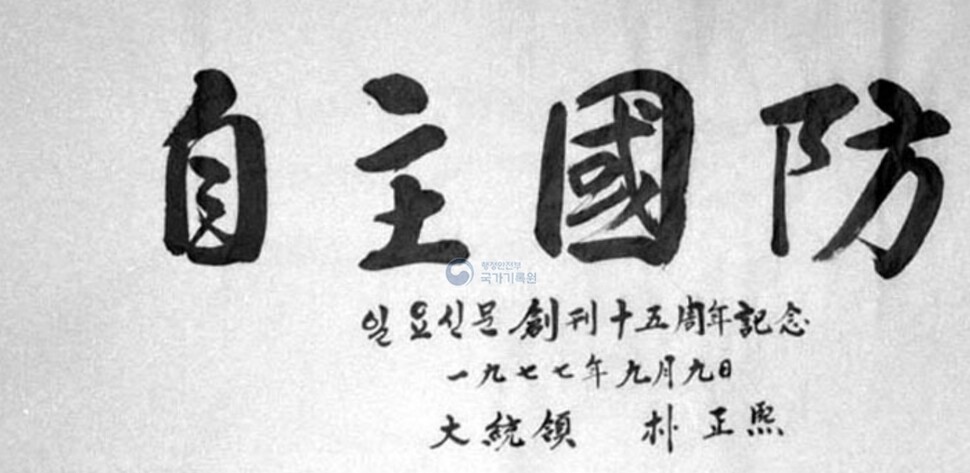 自主國防
행정안전부
국가기록원
일요신문 創刊十五周年記念
一九七七年 九月九日
大統領 朴正熙